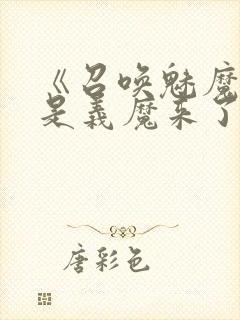 《召唤魅魔
是义魔来了
唐彩色